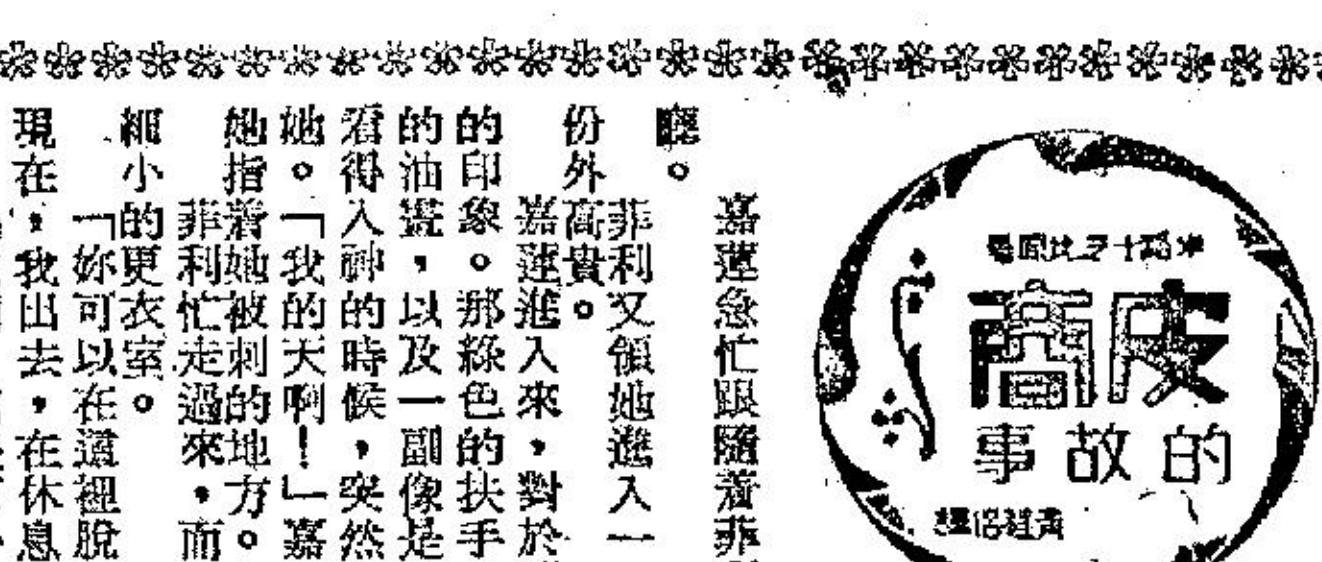 皮商
的故事
嘉蓮急忙跟隨着菲
廳。
菲利又領她進入一
份外高貴。
嘉蓮進入來，對於
的印象。那綠色的扶手
的油畫，以及一副像是
看得入神的時候，突然
她。「我的天啊！」嘉
她指着她被刺的地方。
菲利忙走過來，而
細小的更衣室。
「妳可以在這裡脫
現在，我出去，在休息